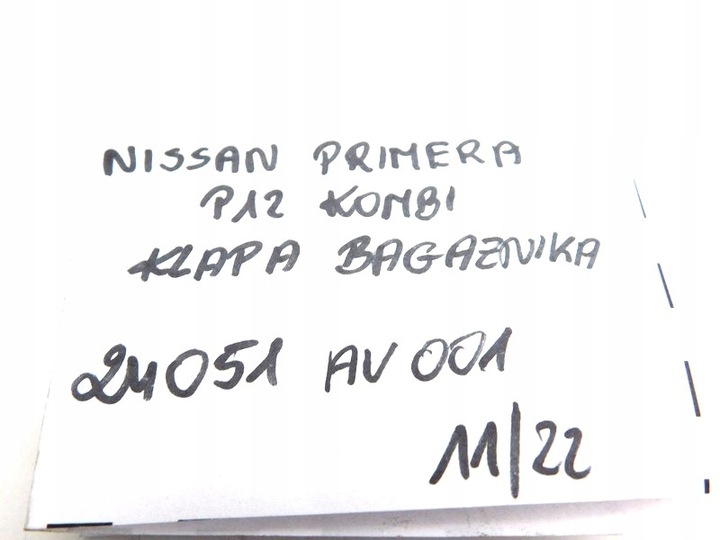 NISSAN PRIMERA
P12 KOMBI
KLAPA BAGAZNIKA
24051 AV001
11/22